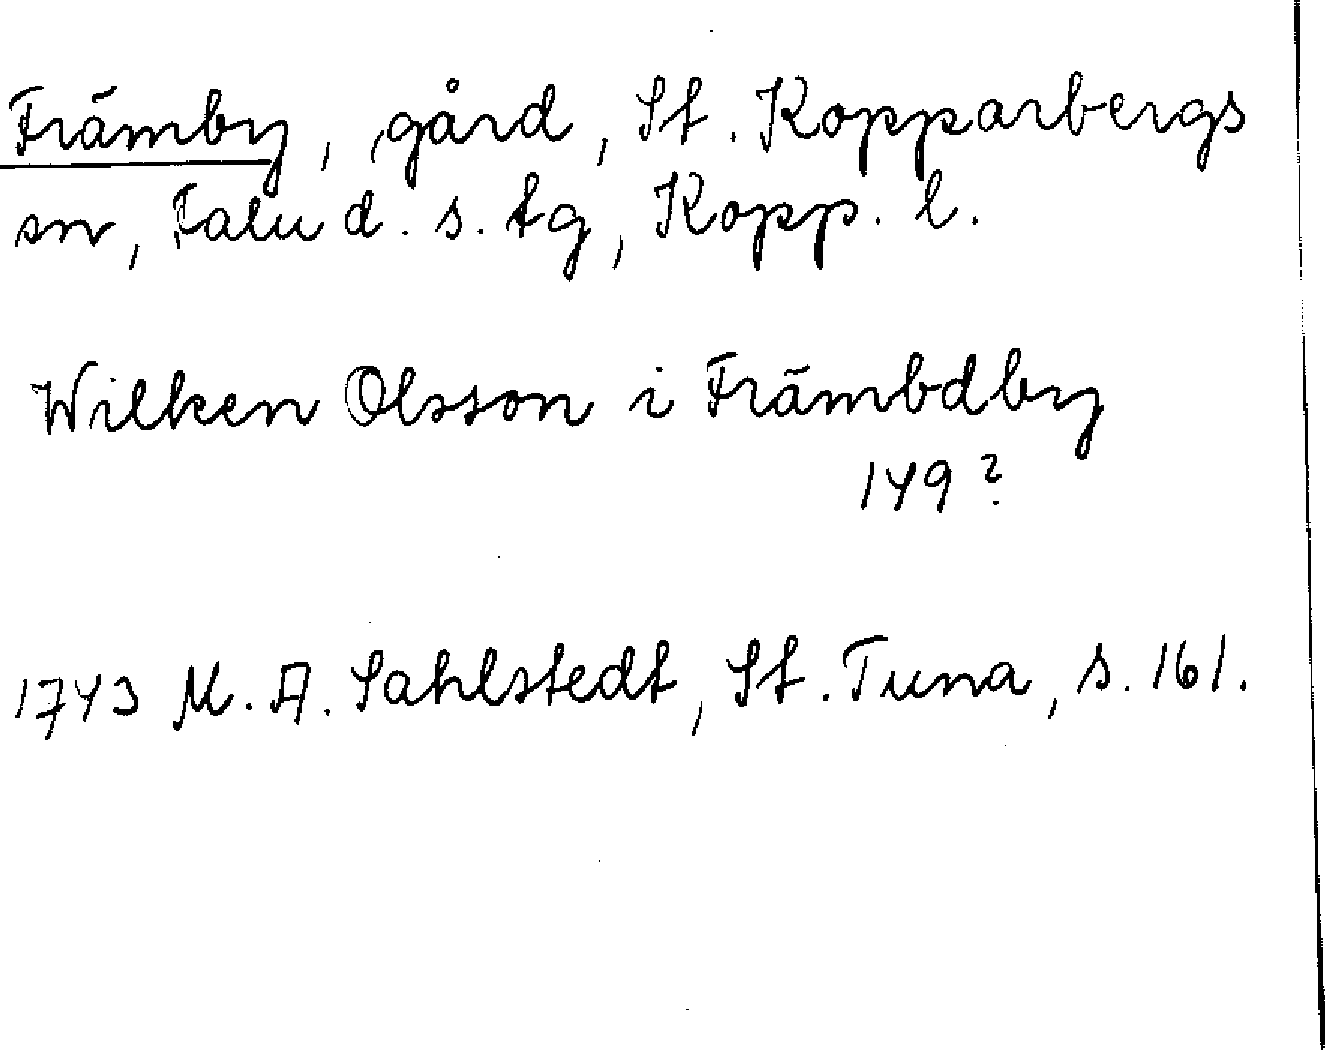 Främby, gård, St. Kopparbergs
sn, Falu d. s. tg, Kopp. l.
Wilken Olsson i Främbdby
149?
1743 M. A. Sahlstedt, St. Tuna, s. 161.